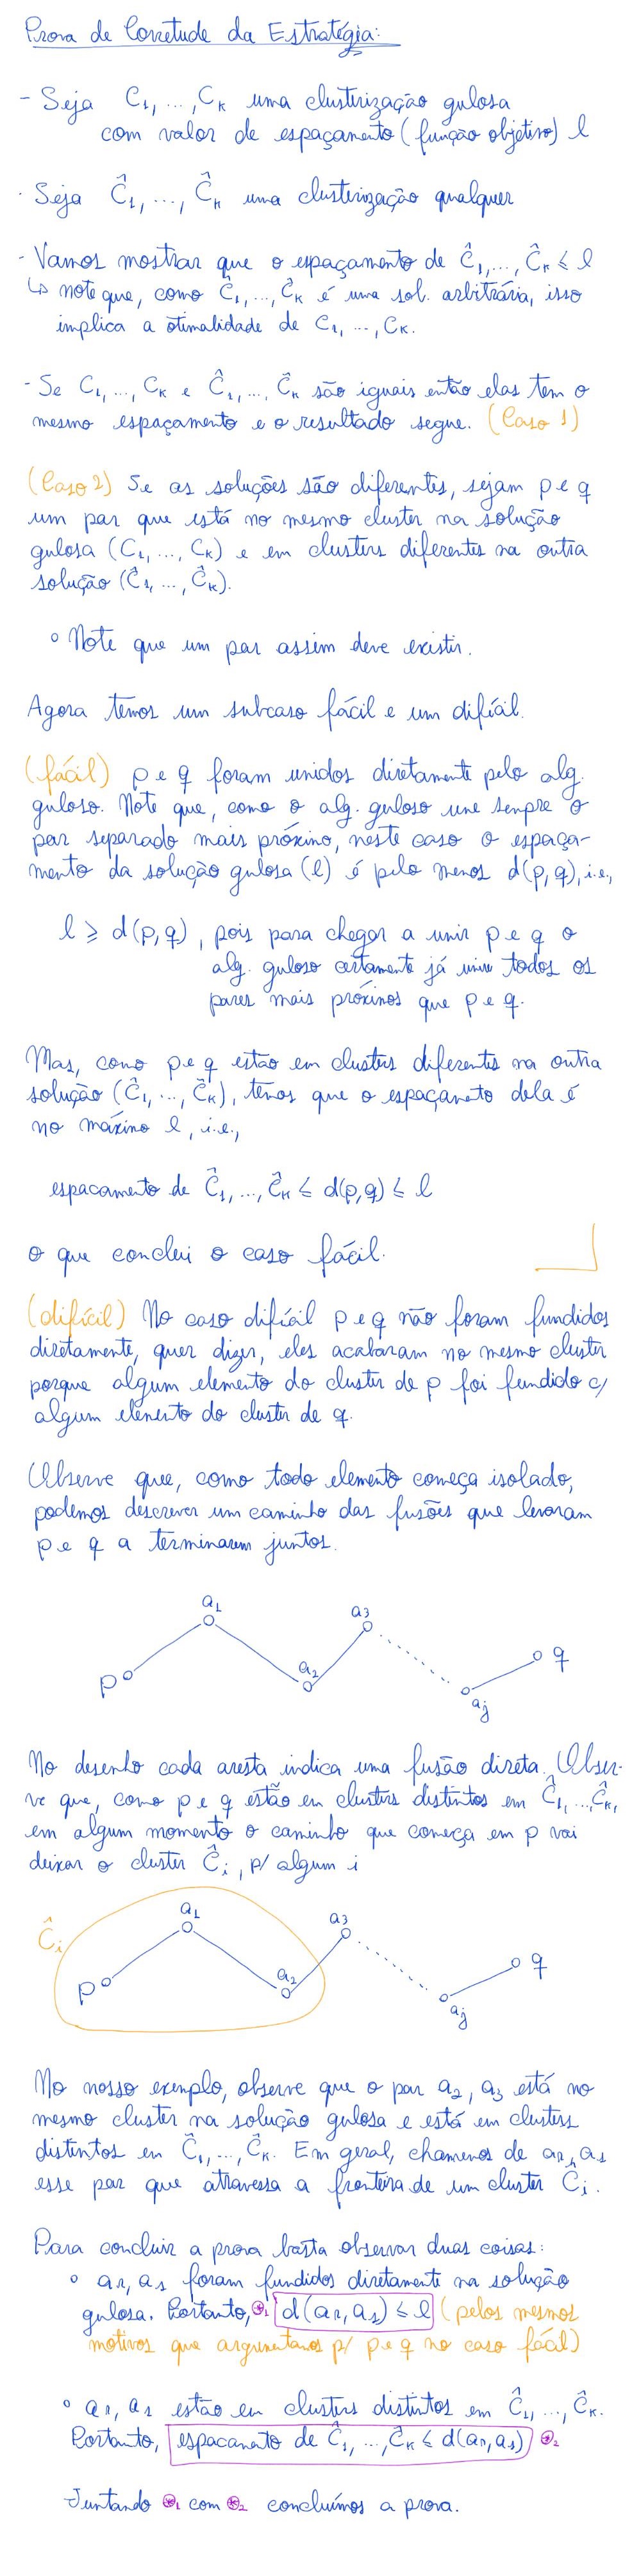 Prova de Corretude da Estratégia:
- Seja C1, ..., CK uma clusterização gulosa
com valor de espaçamento (função objetivo) l
- Seja Ĉ1, ..., ĈK uma clusterização qualquer
- Vamos mostrar que o espaçamento de Ĉ1, ..., ĈK ≤ l
↳ note que, como Ĉ1, ..., ĈK é uma sol. arbitrária, isso
implica a otimalidade de C1, ..., CK.
- Se C1, ..., CK e Ĉ1, ..., ĈK são iguais então elas tem o
mesmo espaçamento e o resultado segue. (Caso 1)
(Caso 2) Se as soluções são diferentes, sejam p e q
um par que está no mesmo cluster na solução
gulosa (C1, ..., CK) e em clusters diferentes na outra
solução (Ĉ1, ..., ĈK).
○ Note que um par assim deve existir.
Agora temos um subcaso fácil e um difícil.
(fácil) p e q foram unidos diretamente pelo alg.
guloso. Note que, como o alg. guloso une sempre o
par separado mais próximo, neste caso o espaça-
mento da solução gulosa (l) é pelo menos d(p,q), i.e.,
l ≥ d(p,q), pois para chegar a unir p e q o
alg. guloso certamente já uniu todos os
pares mais próximos que p e q.
Mas, como p e q estão em clusters diferentes na outra
solução (Ĉ1, ..., ĈK), temos que o espaçamento dela é
no máximo l, i.e.,
espacamento de Ĉ1, ..., ĈK ≤ d(p,q) ≤ l
o que conclui o caso fácil.
(difícil) No caso difícil p e q não foram fundidos
diretamente, quer dizer, eles acabaram no mesmo cluster
porque algum elemento do cluster de p foi fundido c/
algum elemento do cluster de q.
Observe que, como todo elemento começa isolado,
podemos descrever um caminho das fusões que levaram
p e q a terminarem juntos.
a1
a3
q
a2
p
aj
No desenho cada aresta indica uma fusão direta. Obser-
ve que, como p e q estão em clusters distintos em Ĉ1, ..., ĈK,
em algum momento o caminho que começa em p vai
deixar o cluster Ĉi, p/ algum i
a1
a3
Ĉi
q
a2
p
aj
No nosso exemplo, observe que o par a2, a3 está no
mesmo cluster na solução gulosa e está em clusters
distintos em Ĉ1, ..., ĈK. Em geral, chamemos de ar, as
esse par que atravessa a fronteira de um cluster Ĉi.
Para concluir a prova basta observar duas coisas:
○ ar, as foram fundidos diretamente na solução
gulosa. Portanto, ⊛1 d(ar, as) ≤ l (pelos mesmos
motivos que argumentamos p/ p e q no caso fácil)
○ ar, as estão em clusters distintos em Ĉ1, ..., ĈK.
Portanto, espacamento de Ĉ1, ..., ĈK ≤ d(ar, as) ⊛2
Juntando ⊛1 com ⊛2 concluímos a prova.